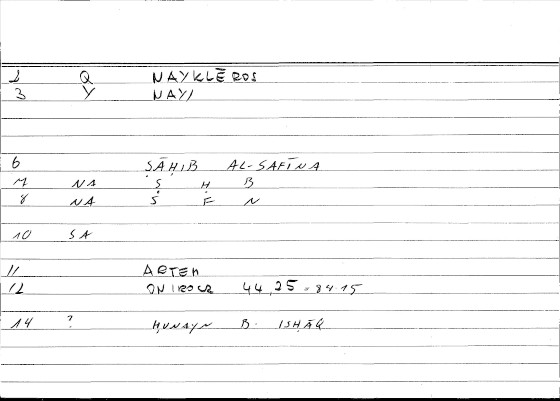 2 Q NAYKLĒROS
3 Y NAYI
6 ṢĀḤIB AL-SAFĪNA
7 NA Ṣ Ḥ B
8 NA S F N
10 SA
11 ARTEM
12 ONIROCR 44,25 = 84.15
14 ? ḤUNAYN B. ISḤĀQ